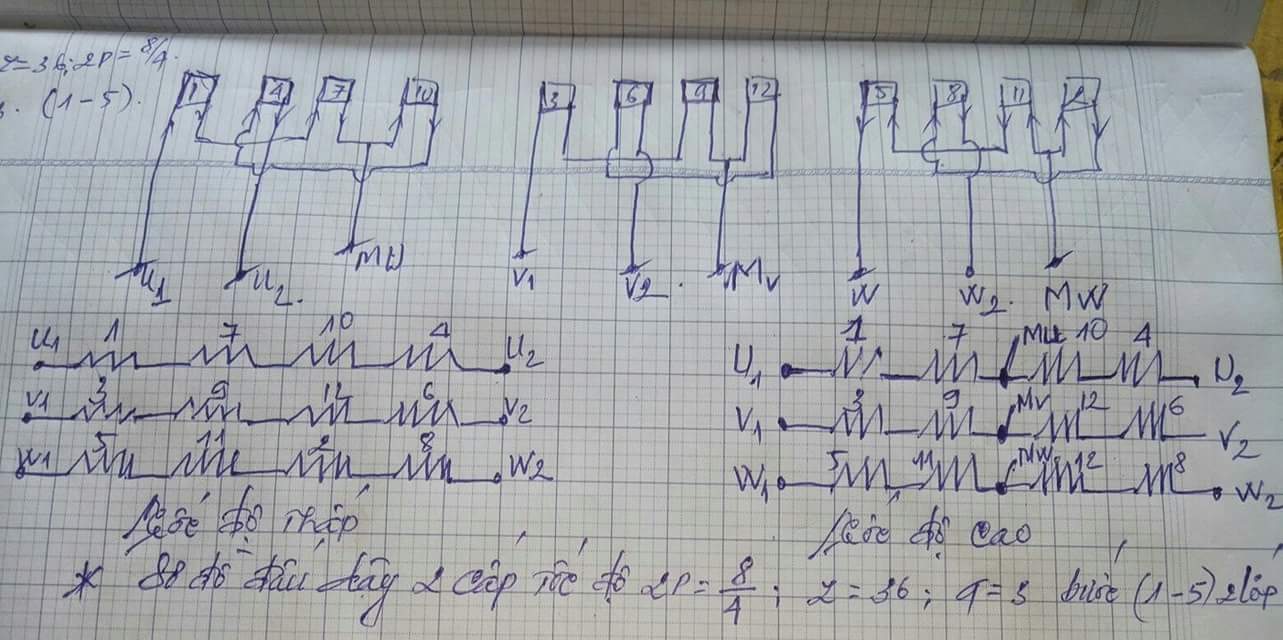 Z=36; 2P=8/4.
3. (1-5).
1 4 7 10 3 6 9 12 5 8 11 2
U1 U2. MU V1 V2. MV W W2. MW
U1 1 7 10 4 U2 U1 1 7 MU 10 4 U2
V1 3 9 12 6 V2 V1 3 9 MV 12 6 V2
W1 5 11 2 8 W2 W1 5 11 MW 12 8 W2
Tốc độ Thấp Tốc độ Cao
* Sơ đồ đấu dây 2 cấp tốc độ 2P=8/4; Z=36; q=3 bước (1-5) 2 lớp